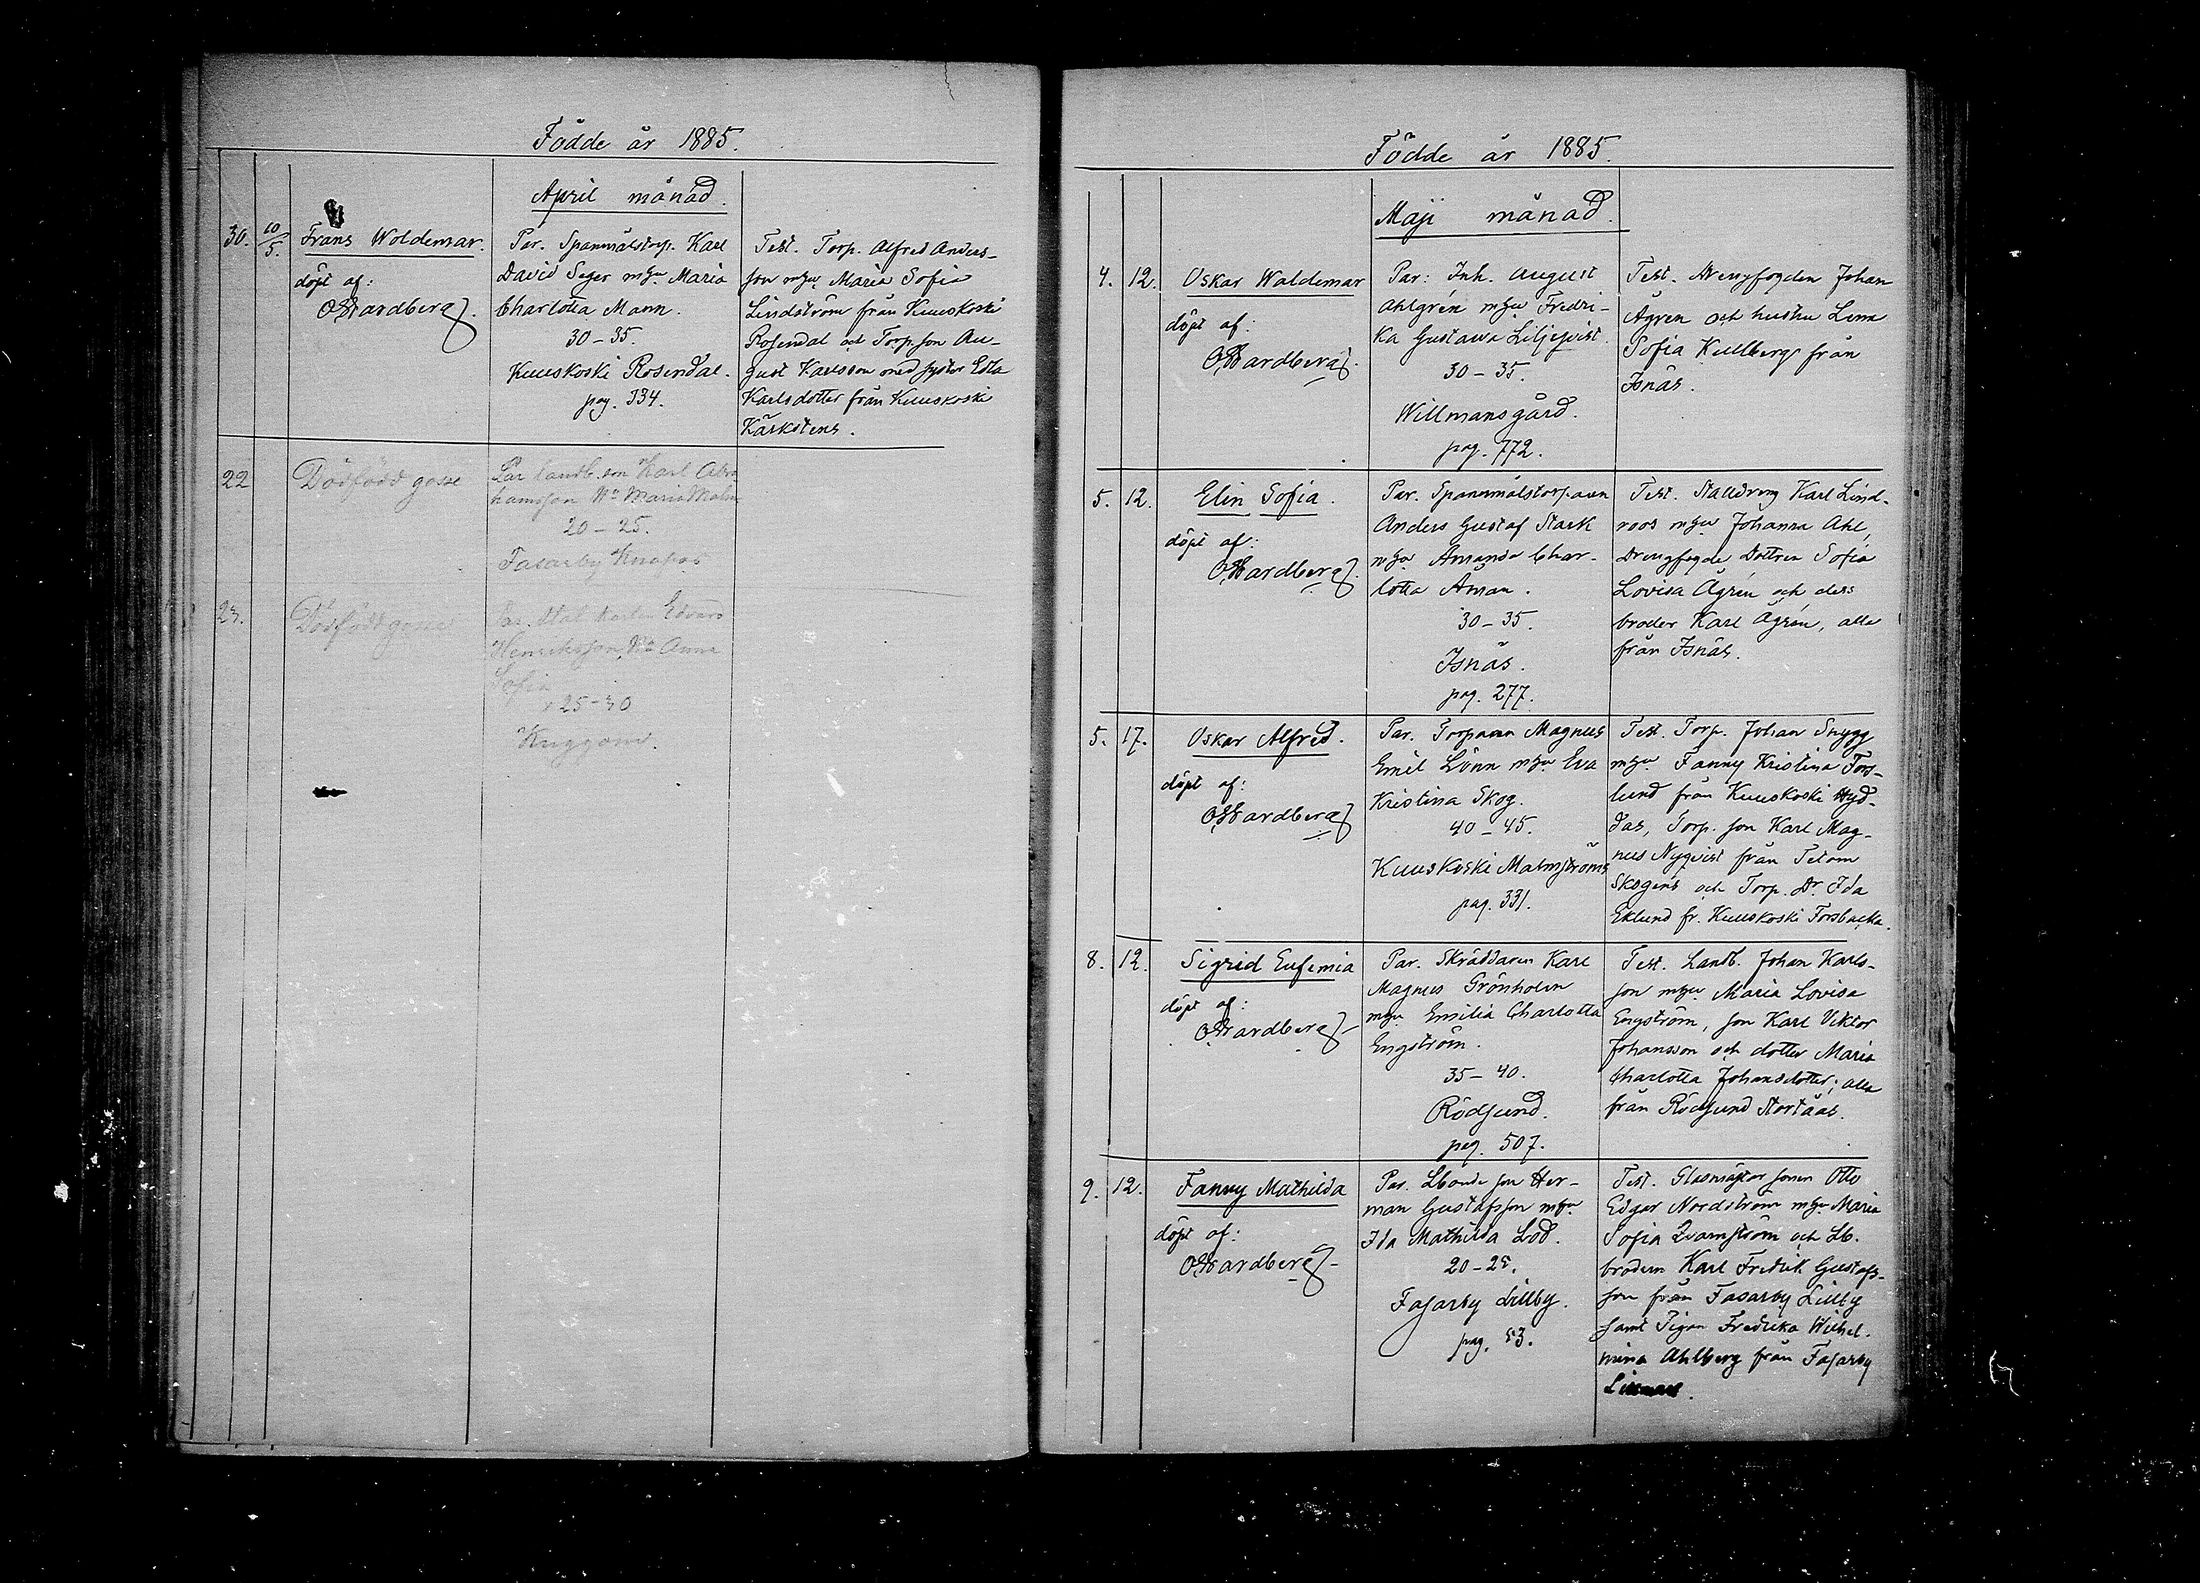 Födde år 1885.
April månad.
30. 10/5. Frans Woldemar.
döpt af:
OWardberg.
Par. Spannmålstorp. Karl
David Seger mhu Maria
Charlotta Mann.
30-35.
Kuuskoski Rosendal.
pag. 334.
Test. Torp. Alfred Anders-
son mhu Maria Sofia
Lindström från Kuuskoski
Rosendal och Torp.son Au-
gust Karlsson med syster Edla
Karlsdotter från Kuuskoski
Kärkstens.
22 Dödfödd gosse
Par landb.son Karl Abra
hamsson Hu Maria Malm
20-25.
Fasarby Knapas
23. Dödfödd gosse
Par. Edvard
Henriksson, Hu Anna
Sofia
25-30
Kuggom.
Födde år 1885.
Maji månad.
4. 12. Oskar Waldemar
döpt af:
OWardberg.
Par: Inh. August
Ahlgrén mhu Fredri-
ka Gustava Liljeqvist.
30-35.
Willmansgård.
pag. 772.
Test. Drengfogden Johan
Ågren och hustru Lena
Sofia Kullberg från
Isnäs.
5. 12. Elin Sofia.
döpt af:
OWardberg.
Par. Spannmålstorparen
Anders Gustaf Stark
mhu Amanda Char-
lotta Åman.
30-35.
Isnäs.
pag. 277.
Test. Stalldreng Karl Lind-
roos mhu Johanna Ahl,
Drengfogde Dottren Sofia
Lovisa Ågrén och dess
broder Karl Ågrén, alla
från Isnäs.
5. 17. Oskar Alfred.
döpt af:
OWardberg
Par. Torparen Magnus
Emil Lönn mhu Eva
Kristina Skog.
40-45.
Kuuskoski Malmströms
pag. 331.
Test. Torp. Johan Snygg
mhu Fanny Kristina Fors-
lund från Kuuskoski Hyd-
das, Torp. son Karl Mag-
nus Nyqvist från Tetom
Skogens och Torp. Dr. Ida
Eklund fr. Kuuskoski Forsbacka.
8. 12. Sigrid Eufemia
döpt af:
OWardberg
Par. Skräddaren Karl
Magnus Grönholm
mhu Emilia Charlotta
Engström.
35-40.
Rödsund.
pag. 507.
Test. Landb. Johan Karls-
son mhu Maria Lovisa
Engström, son Karl Viktor
Johansson och dotter Maria
Charlotta Johansdotter; alla
från Rödsund Stortäas.
9. 12. Fanny Mathilda
döpt af:
OWardberg
Par. Lbonde son Her-
man Gustafsson mhu
Ida Mathilda Lod.
20-25.
Fasarby Lillby.
pag. 53.
Test. Glasmästar sonen Otto
Edgar Nordström mhu Maria
Sofia Qvarnström och Lb.
brodern Karl Fredrik Gustafs-
son från Fasarby Lillby
samt Pigan Fredrika Wilhel-
mina Ahlberg från Fasarby